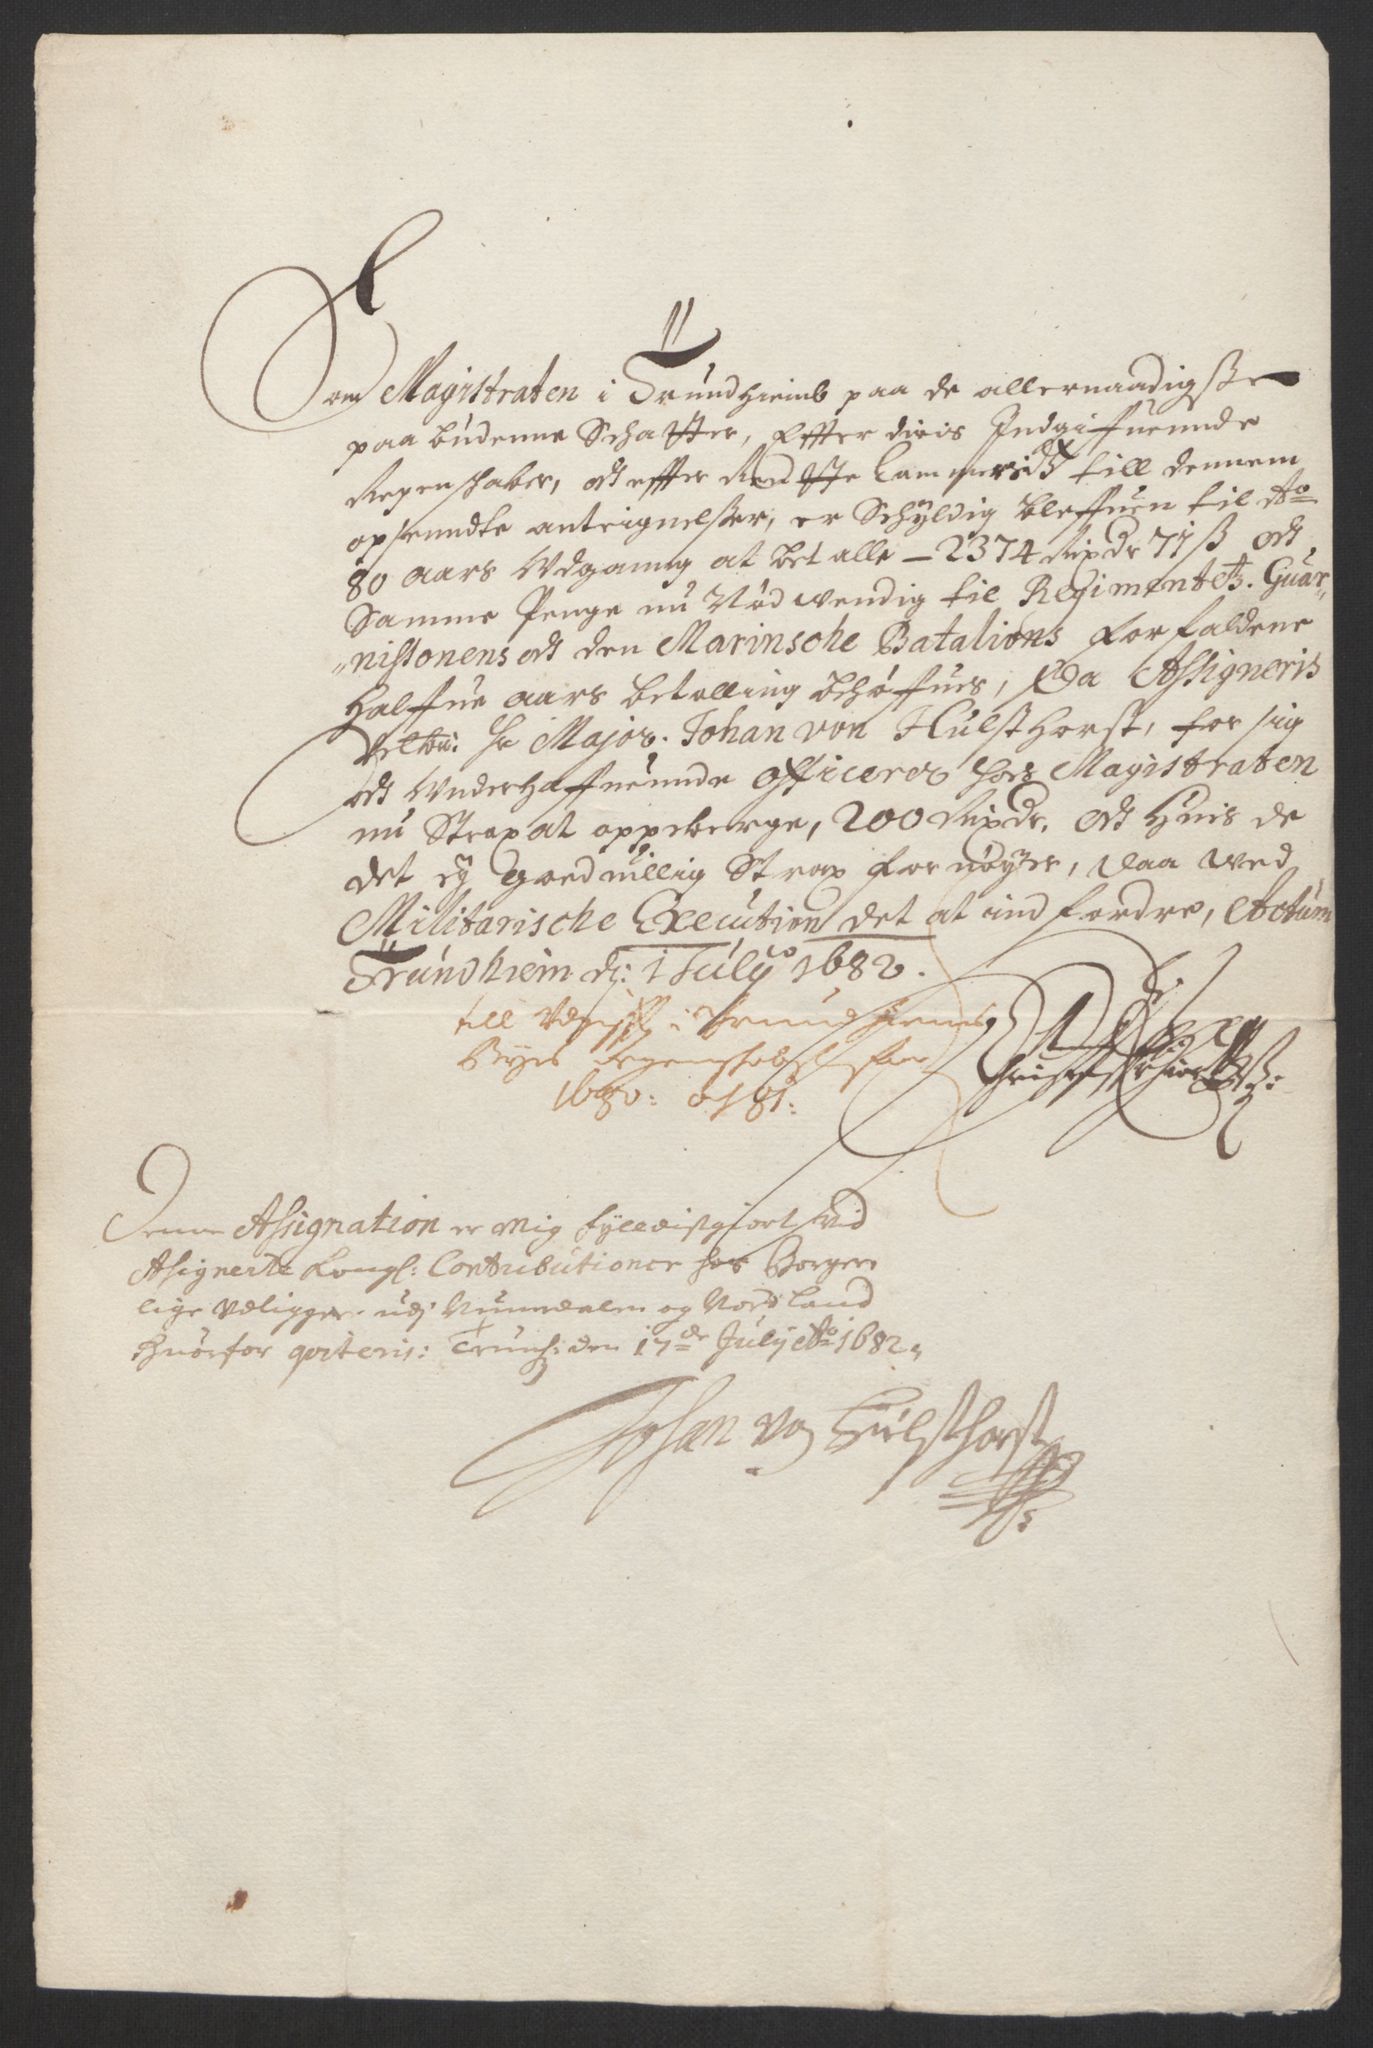 Som Magistraten i Trundhiemb paa de allernaadigste
paa budenne Schatter, Effter dieris Indgifuennde
Regenskaber, och effter Rendte Cammeridtz till dennem
opsenndte anteignelser, er Schyldig bleffuen til Ao
80 aars Udgannng at betalle – 2374 Rixdr 71 ß och
Samme Penge nu Nødwendig til Regimentetz. Guar„
„nissonens och den Marinsche Bataliöns forfaldene
halffue aars betalling behøffues, Da Assigneris
Velbr: Hr Major. Johan von Hülsthorst, for sig
och Underhaffuennde Officerer hos Magistraten
nu Strax at oppeberge, 200 Rixdr. och huis de
det ey goedwillig Strax fornøyer, daa wed
Militarische Execution det at ind fordre, Actum
Trundhiem dj: 1 July Ao 1682.
till i Trundhiems
Byes Regenskab for
1680: og 81:
Denne Assignation er mig fyldistgiort ved
Assignerte Kongl: Contributioner hos Borger
lige udligger udj Nummedalen og Nordland
huorfor qviteris: Trundh: den 17de July Ao 1682,
Johan von Hülsthorst